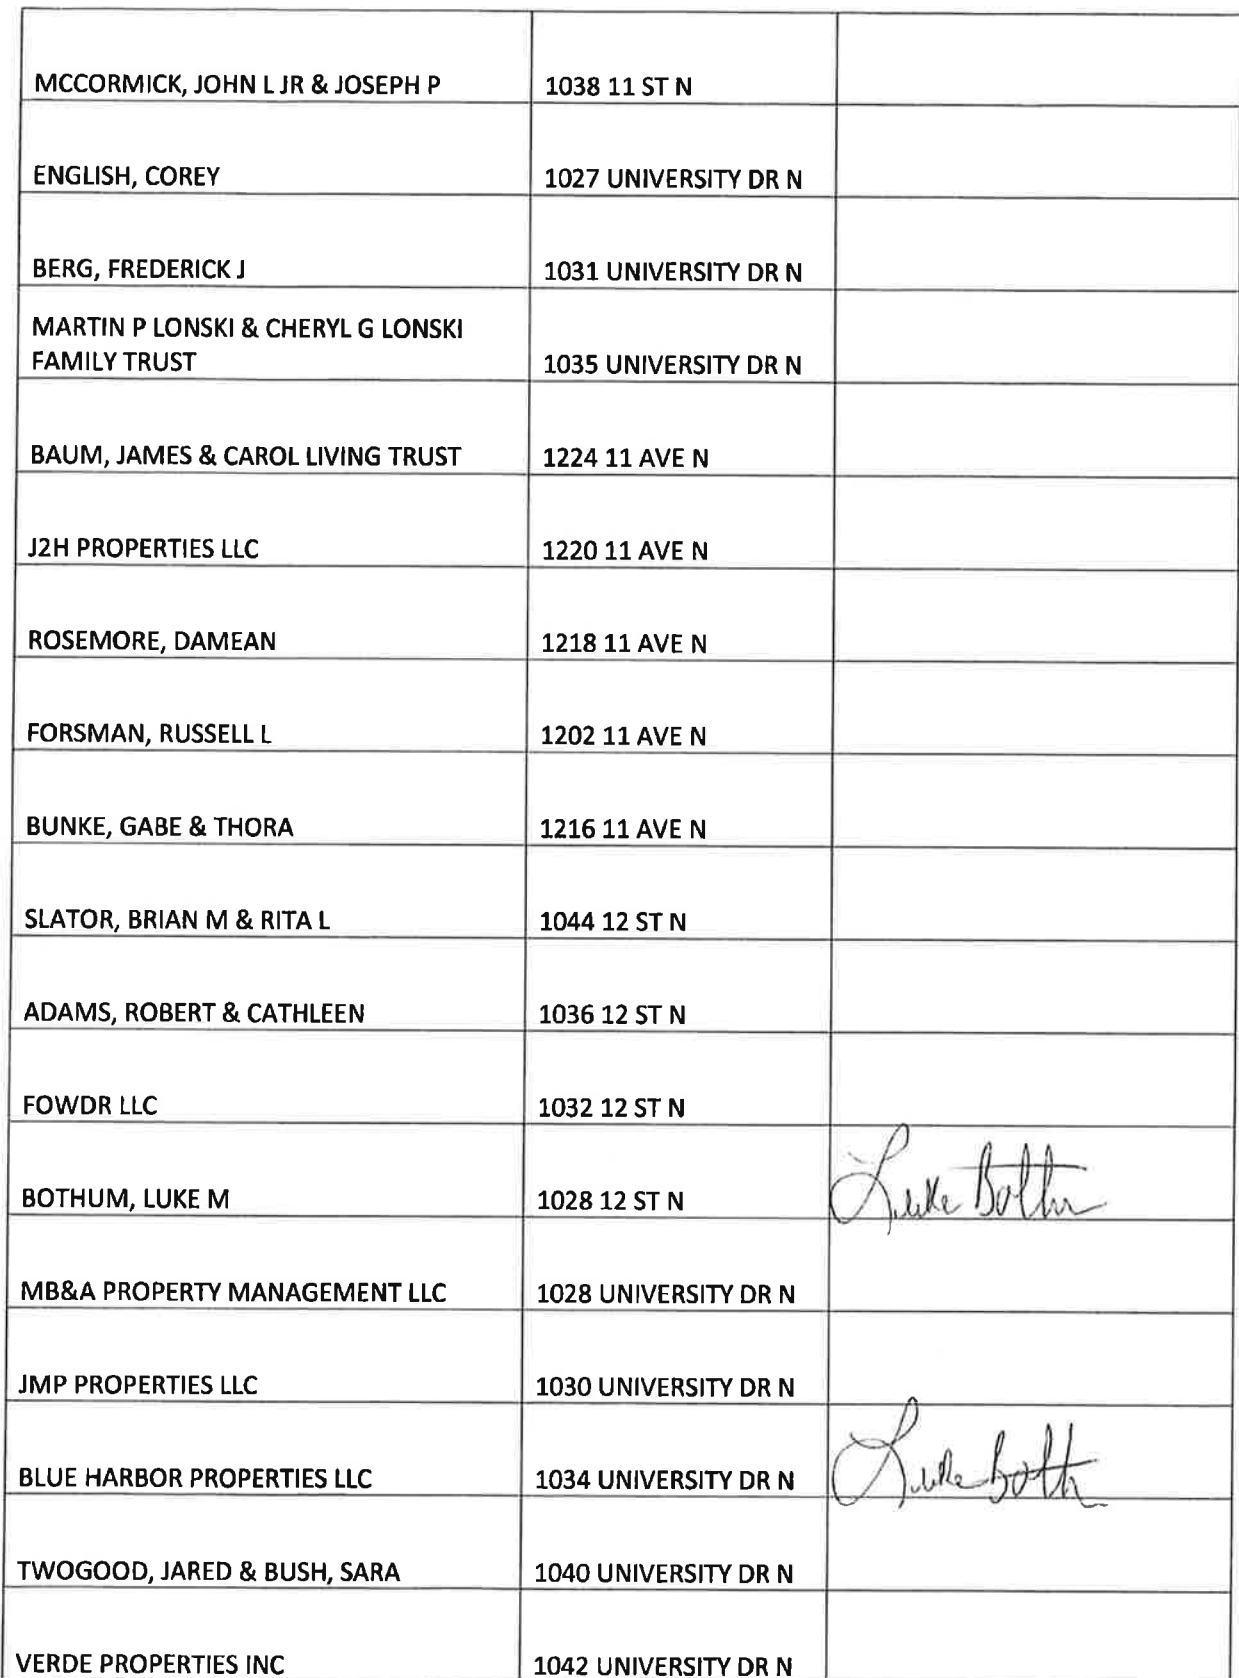 MCCORMICK, JOHN L JR & JOSEPH P 1038 11 ST N
ENGLISH, COREY 1027 UNIVERSITY DR N
BERG, FREDERICK J 1031 UNIVERSITY DR N
MARTIN P LONSKI & CHERYL G LONSKI
FAMILY TRUST 1035 UNIVERSITY DR N
BAUM, JAMES & CAROL LIVING TRUST 1224 11 AVE N
J2H PROPERTIES LLC 1220 11 AVE N
ROSEMORE, DAMEAN 1218 11 AVE N
FORSMAN, RUSSELL L 1202 11 AVE N
BUNKE, GABE & THORA 1216 11 AVE N
SLATOR, BRIAN M & RITA L 1044 12 ST N
ADAMS, ROBERT & CATHLEEN 1036 12 ST N
FOWDR LLC 1032 12 ST N
BOTHUM, LUKE M 1028 12 ST N Luke Bothum
MB&A PROPERTY MANAGEMENT LLC 1028 UNIVERSITY DR N
JMP PROPERTIES LLC 1030 UNIVERSITY DR N
BLUE HARBOR PROPERTIES LLC 1034 UNIVERSITY DR N Luke Both
TWOGOOD, JARED & BUSH, SARA 1040 UNIVERSITY DR N
VERDE PROPERTIES INC 1042 UNIVERSITY DR N